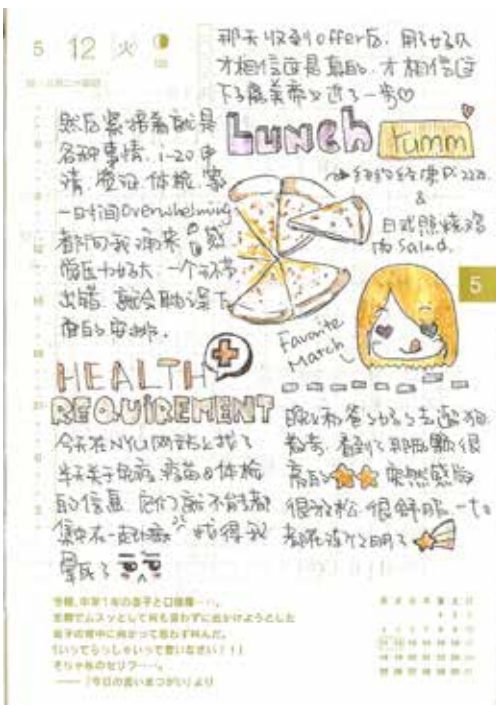 5 12 火
那天收到offer后, 用了好久
才相信这是真的, 才相信这
下离美帝又近了一步♡
然后紧接着就是
各种事情. i-20申
请. 签证. 体检. 第
一时间overwhelming
都向我涌来. 感
觉压力好大, 一个不
出错, 就会耽误下
面的安排.
LUNCH Yumm
经典Pizza
&
日式照烧鸡
肉Salad.
5
Favorite
March
HEALTH
REQUIREMENT
今天在NYU网站上找了
半天关于免疫, 疫苗及体检
的信息. 它们就不能都
集中在一起嘛 找得我
晕死了
晚上和爸爸妈妈去遛狗
散步. 看到了那两颗很
亮的 突然感觉
很放松, 很舒服. 一切
都在这个
早朝、中学1年の息子と口喧嘩…。
玄関でムスッとして何も言わずに出かけようとした
息子の背中に向かって思わず叫んだ。
「いってらっしゃいって言いなさい！！」
そりゃ私のセリフ…。
——『今日の言いまつがい』より